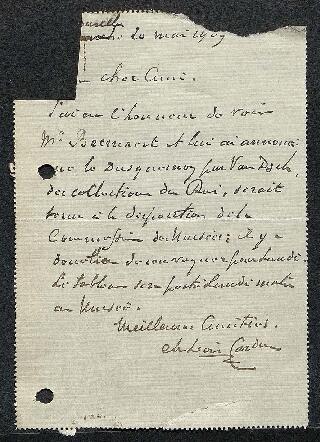 20 mai 1909
cher ami.
J'ai eu l'honneur de voir
Mr Beernaert et lui ai annoncé
que le Duquesnoy par Van Dyck,
des collections du Roi, serait
tenu à la disposition de la
Commission du Musée; il y a
donc lieu de convoquer pour lundi
Le tableau sera porté lundi matin
au Musée.
Meilleures amitiés.
ch Léon Cardon